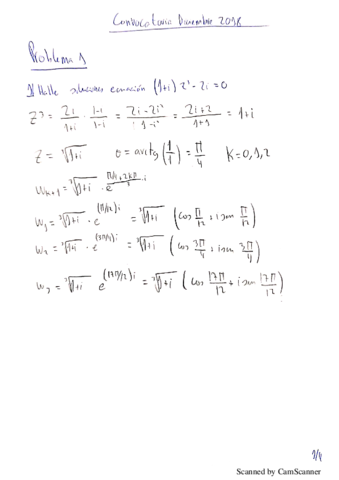 Convocatoria Diciembre 2018
Problema 1
1) Halle soluciones ecuación (1+i) z³ - 2i = 0
z³ = 2i/(1+i) · (1-i)/(1-i) = (2i-2i²)/(1-i²) = (2i+2)/(1+1) = 1+i
z = ³√(1+i)    θ = arctg (1/1) = π/4    K=0,1,2
w_{k+1} = ³√(1+i) · e^{(π/4+2kπ)/3 · i}
w₁ = ³√(1+i) · e^{(π/12)i} = ³√(1+i) (cos π/12 + i sen π/12)
w₂ = ³√(1+i) · e^{(3π/4)i} = ³√(1+i) (cos 3π/4 + i sen 3π/4)
w₃ = ³√(1+i) e^{(17π/12)i} = ³√(1+i) (cos 17π/12 + i sen 17π/12)
1/4
Scanned by CamScanner